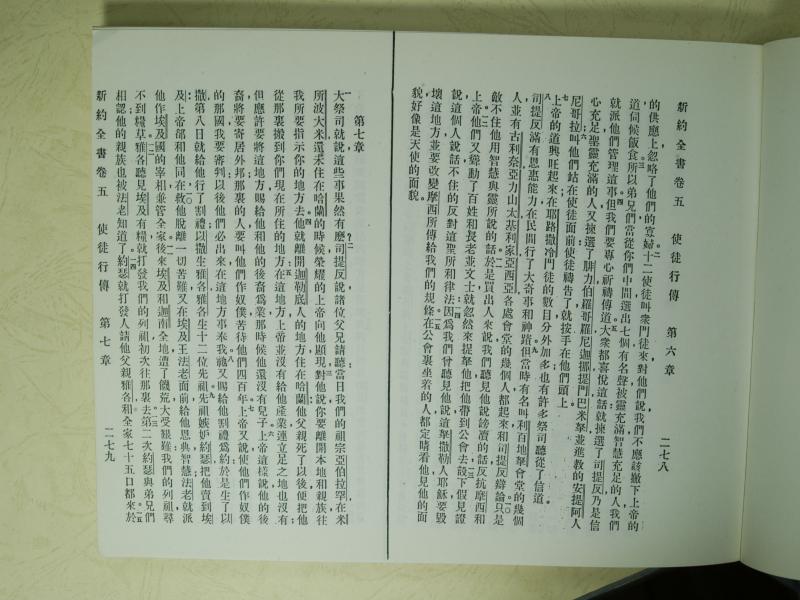 新約全書卷五　使徒行傳　第六章　二七八
的供應上忽略了他們的寡婦十二使徒叫衆門徒來對他們說我們不應該撇下上帝的
道伺候飯食所以弟兄們當從你們中間選出七個有名聲被靈充滿智慧充足的人我們
就派他們管理這事但我們要專心祈禱傳道大衆都喜悅這話就揀選了司提反乃是信
心充足聖靈充滿的人又揀選了腓力伯羅哥羅尼迦挪提門巴米拏並進教的安提阿人
尼哥拉叫他們站在使徒面前使徒禱告了就按手在他們頭上
上帝的道興旺起來在耶路撒冷門徒的數目分外加多也有許多祭司聽從了信道
司提反滿有恩惠能力在民間行了大奇事和神蹟但當時有名叫利百地拏會堂的幾個
人並有古利奈亞力山太基利家亞西亞各處會堂的幾個人都起來和司提反辯論只是
敵不住他用智慧與靈所說的話於是買出人來說我們聽見他說謗瀆的話反抗摩西和
上帝他們又聳動了百姓和長老並文士就忽然來捉拏他把他帶到公會去設下假見證
說這個人說話不住的反對這聖所和律法因爲我們曾聽見他說這拏撒勒人耶穌要毀
壞這地方並要改變摩西所傳給我們的規條在公會裏坐着的人都定睛看他見他的面
貌好像是天使的面貌
第七章
大祭司就說這些事果然有麽司提反說諸位父兄請聽當日我們的祖宗亞伯拉罕在米
所波大米還未住在哈蘭的時候榮耀的上帝向他顯現對他說你要離開本地和親族往
我所要指示你的地方去他就離開迦勒底人的地方住在哈蘭他父親死了以後便把他
從那裏搬到你們現在所住的地方在這地方上帝並沒有給他產業連立足之地也沒有
但應許要將這地方賜給他和他的後裔爲業那時候他還沒有兒子上帝這樣說他的後
裔將要寄居外邦那裏的人要叫他們作奴僕苦待他們四百年上帝又說使他們作奴僕
的那國我要審判以後他們必出來在這地方事奉我祂又賜給他割禮爲約於是生了以
撒第八日就給他行了割禮以撒生雅各雅各生十二位先祖先祖嫉妒約瑟把他賣到埃
及上帝卻和他同在救他脫離一切苦難又在埃及王法老面前給他恩典智慧法老就派
他作埃及國的宰相兼管全家後來埃及和迦南全地遭了饑荒大受艱難我們的列祖尋
不到糧草雅各聽見埃及有糧就打發我們的列祖初次往那裏去第二次約瑟與弟兄們
相認他的親族也被法老知道了約瑟就打發人請他父親雅各和全家七十五口都來於
新約全書卷五　使徒行傳　第七章　二七九